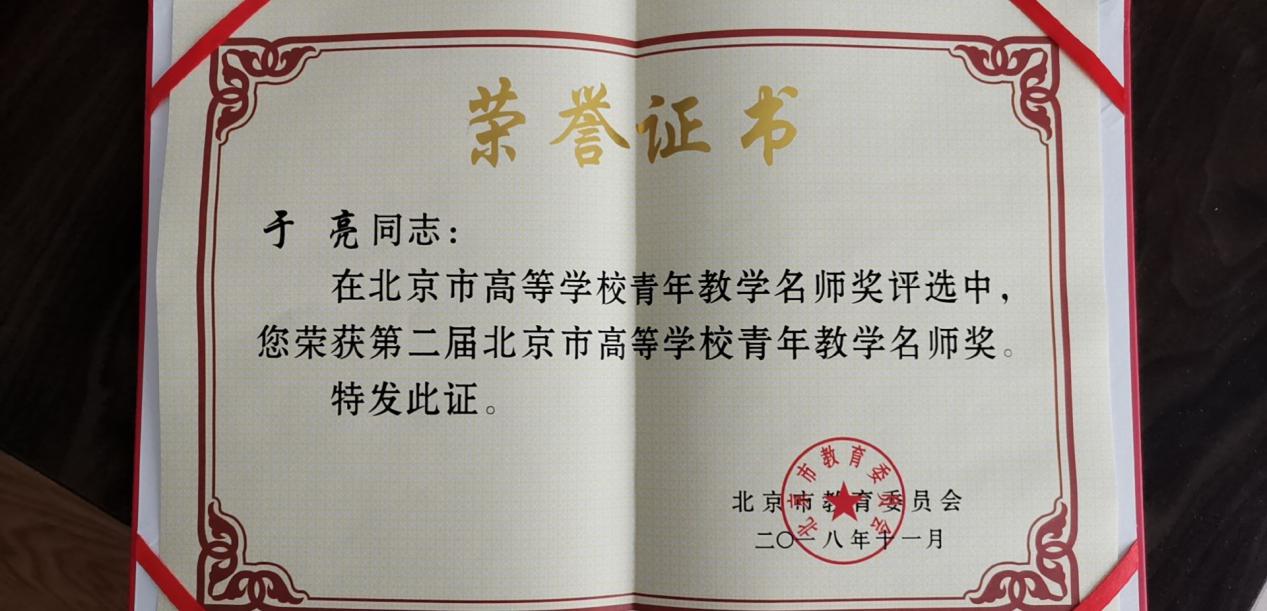 荣誉证书
于 亮同志：
在北京市高等学校青年教学名师奖评选中，
您荣获第二届北京市高等学校青年教学名师奖。
特发此证。
北京市教育委员会
北京市教育委员会
二〇一八年十一月